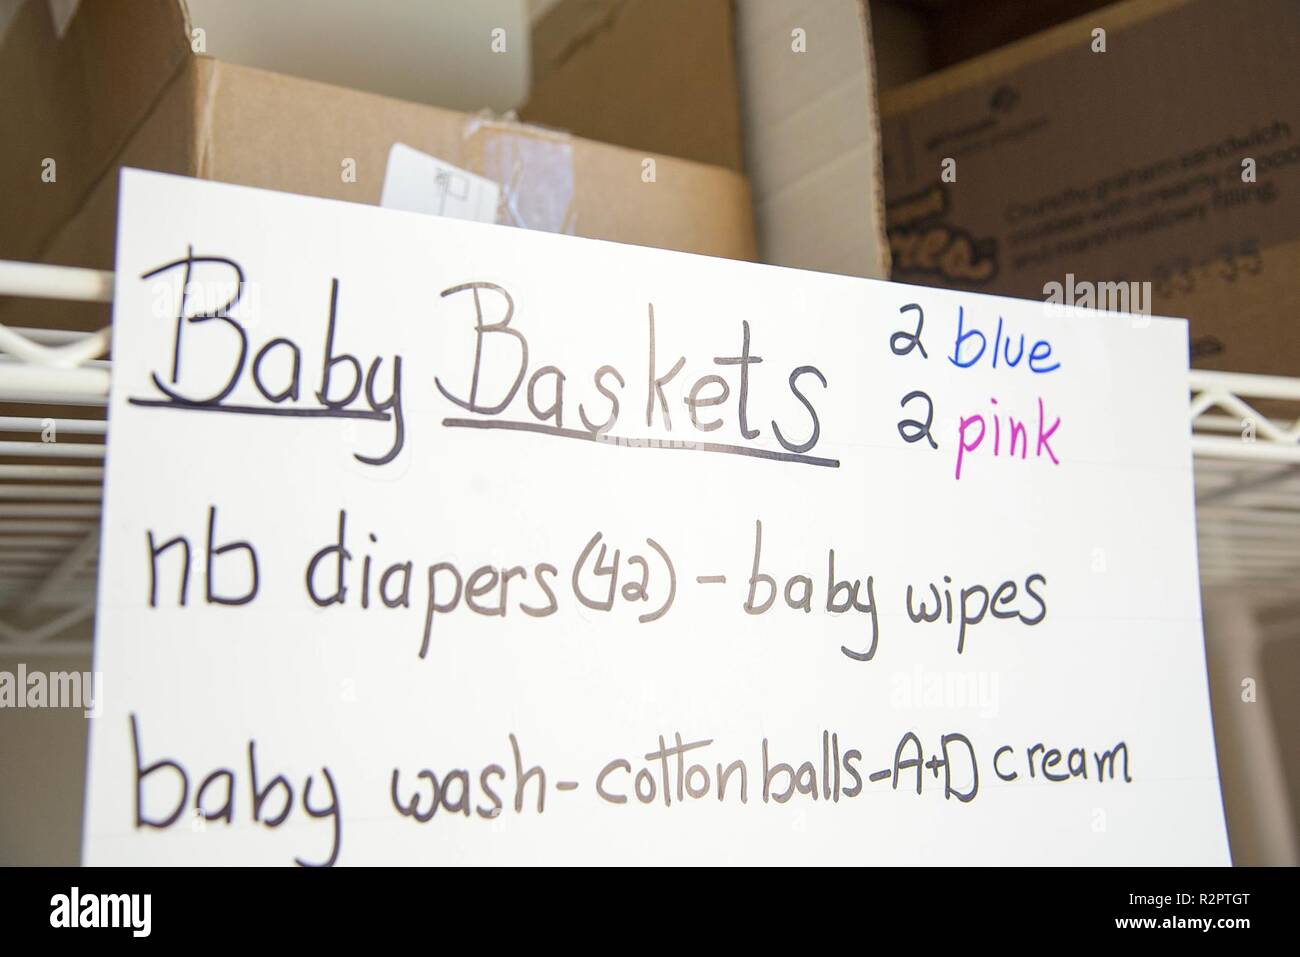 Baby Baskets 2 blue
2 pink
nb diapers (42) - baby wipes
baby wash - cotton balls - A+D cream
Crunchy graham sandwich
cookies with creamy chocol
and marshmallowy filling.
33-35
alamy
Image ID: R2PTGT
www.alamy.com